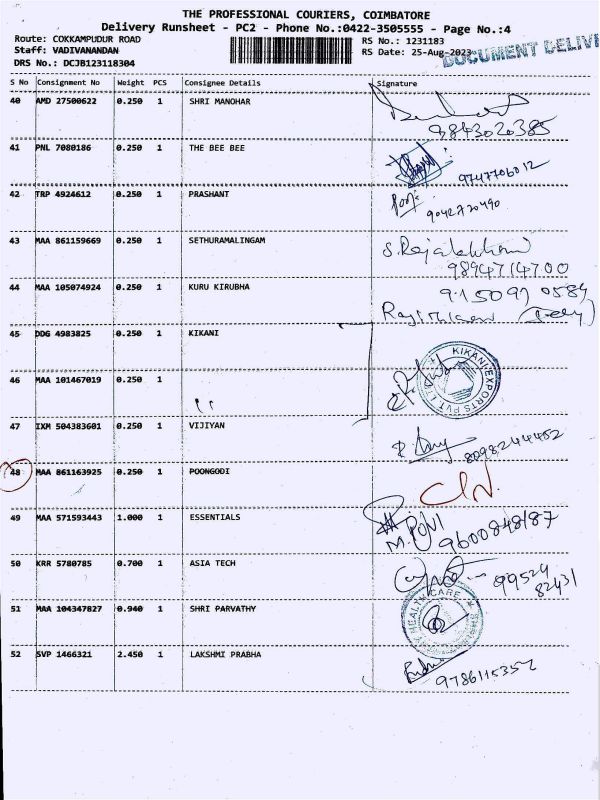 THE PROFESSIONAL COURIERS, COIMBATORE
Delivery Runsheet - PC2 - Phone No.:0422-3505555 - Page No.:4
Route: COKKAMPUDUR ROAD
RS No.: 1231183
Staff: VADIVANANDAN
RS Date: 25-Aug-2023
DOCUMENT DELIV
DRS No.: DCJB123118304
S No Consignment No Weight PCS Consignee Details Signature
40 AMD 27500622 0.250 1 SHRI MANOHAR
9843020385
41 PNL 7080186 0.250 1 THE BEE BEE
9747706012
42 TRP 4924612 0.250 1 PRASHANT
9042720490
43 MAA 861159669 0.250 1 SETHURAMALINGAM
9894714700
44 MAA 105074924 0.250 1 KURU KIRUBHA
915097 0584
45 DDG 4983825 0.250 1 KIKANI
KIKANI EXPORTS PVT LTD
46 MAA 101467019 0.250 1
47 IXM 504383601 0.250 1 VIJIYAN
8098244452
48 MAA 861163925 0.250 1 POONGODI
49 MAA 571593443 1.000 1 ESSENTIALS
9600848187
50 KRR 5780785 0.700 1 ASIA TECH
99524
82431
51 MAA 104347827 0.940 1 SHRI PARVATHY
HEALTH CARE
52 SVP 1466321 2.450 1 LAKSHMI PRABHA
9786115352